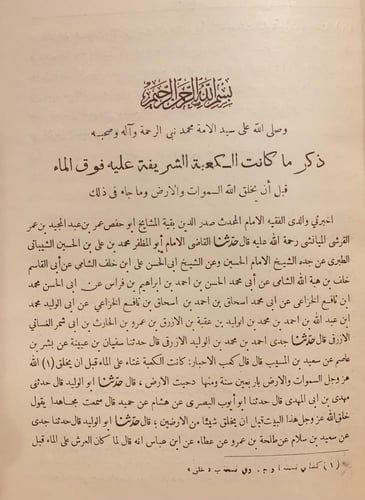 بسم الله الرحمن الرحيم
وصلى الله على سيد الامة محمد نبي الرحمة وآله وصحبه
ذكر ما كانت الكعبة الشريفة عليه فوق الماء
قبل أن يخلق الله السموات والارض وما جاء في ذلك
اخبرني والدي الفقيه الامام المحدث صدر الدين بقية المشايخ ابو حفص عمر بن عبد المجيد بن عمر
القرشي الميانشي رحمة الله عليه قال حدثنا القاضي الامام أبو المظفر محمد بن علي بن الحسين الشيباني
الطبري عن جده الشيخ الامام الحسين وعن الشيخ ابي الحسن علي ابن خلف الشامي عن أبي القاسم
خلف بن هبة الله الشامي عن أبي محمد الحسن بن احمد بن ابراهيم بن فراس عن ابي الحسن محمد
ابن نافع الخزاعي عن ابي محمد اسحاق بن احمد بن اسحاق بن نافع الخزاعي عن ابي الوليد محمد
ابن عبد الله بن احمد بن محمد بن الوليد بن عقبة بن الازرق بن عمرو بن الحارث بن ابي شمر الغساني
الازرقي قال حدثنا جدي أحمد بن محمد بن الوليد الازرقي قال حدثنا سفيان بن عيينة عن بشر بن
عاصم عن سعيد بن المسيب قال قال كعب الاحبار: كانت الكعبة غثاء على الماء قبل ان يخلق (١) الله
عز وجل السموات والارض باربعين سنة ومنها دحيت الارض، قال حدثنا ابو الوليد قال حدثني
مهدي بن ابي المهدي قال حدثنا ابو أيوب البصري عن هشام عن حميد قال سمعت مجاهدا يقول
خلق الله عز وجل هذا البيت قبل ان يخلق شيئا من الارضين، قال حدثنا ابو الوليد قال حدثنا جدي
عن سعيد بن سلام عن طلحة بن عمرو عن عطاء عن ابن عباس انه قال لما كان العرش على الماء قبل
(١) كذا في نسخة ا و ج. وفي نسخة ب «خلق»